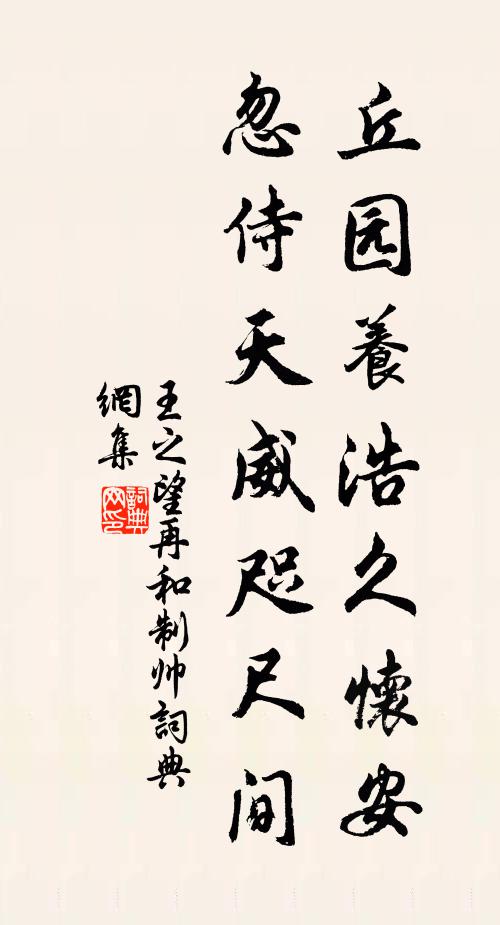 丘园養浩久懷安
忽侍天威咫尺间
王之望再和制帅詞典
網集
詞典
网印